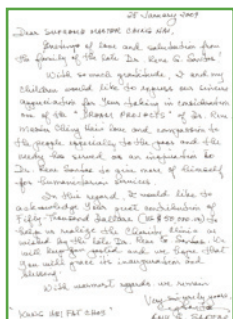 28 January 2009
Dear SUPREME MASTER CHING HAI,
Greetings of love and salutation from
the family of the late Dr. Rene G. Santos!
With so much gratitude, I and my
children would like to express our sincere
appreciation for Your taking in consideration
one of the "DREAM PROJECTS" of Dr. Rene
Master Ching Hai's love and compassion to
the people especially to the poor and the
needy has served as an inspiration to
Dr. Rene Santos to give more of himself
for humanitarian services.
In this regard, I would like to
acknowledge Your great contribution of
Fifty-Thousand Dollars (US $50,000.00) to
help us realize the Charity Clinic as
wished by the late Dr. Rene G. Santos. We
will keep You posted and we hope that
You will grace its inauguration and
blessing.
With warmest regards, we remain
Very sincerely yours,
SANTOS